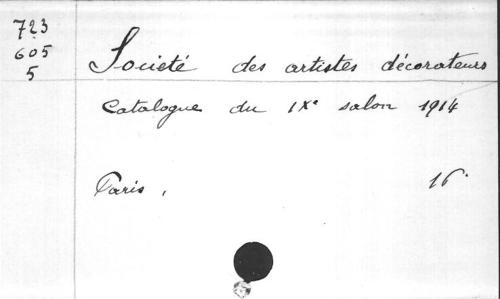 723
605
5
Societé des artistes décorateurs
Catalogue du IXe salon 1914
Paris, 16°